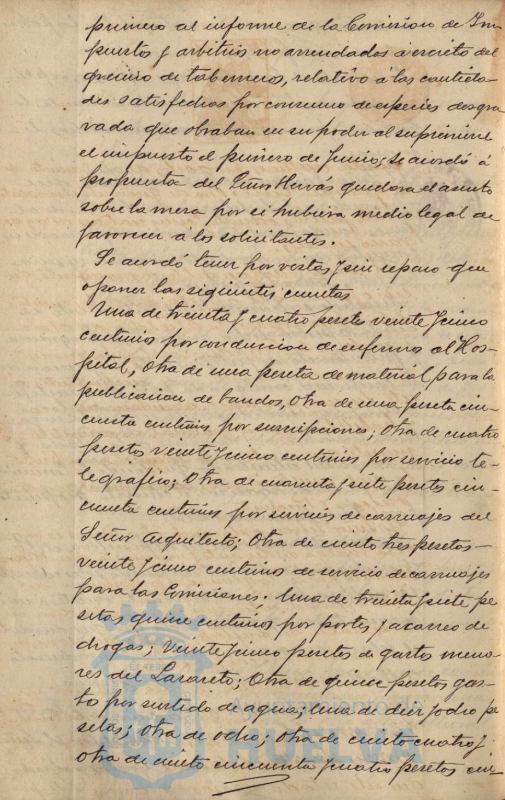 primero al informe de la Comision de Im
puestos y arbitrios no arrendados á escrito del
gremio de taberneros, relativo á las cantida
des satisfechas por consumo de especies desgra
vada que obraban en su poder al suprimirse
el impuesto el primero de Junio; se acordó á
propuesta del Señor Hervás quedara el asunto
sobre la mesa por si hubiera medio legal de
favorecer á los solicitantes.
Se acordó tener por vistas y sin reparo que
oponer las siguientes cuentas
Una de treinta y cuatro pesetas veinte y cinco
centimos por conduccion de enfermos al Hos-
pital, Otra de una peseta de material para la
publicacion de bandos, Otra de una peseta cin-
cuenta centimos por suscripciones; Otra de cuatro
pesetas veinte y cinco centimos por servicio te-
legrafico; Otra de cuarenta y siete pesetas cin-
cuenta centimos por servicios de carruajes del
Señor Arquitecto; Otra de ciento tres pesetas
veinte y cinco centimos de servicio de carruajes
para las Comisiones. Una de treinta y siete pe
setas quince centimos por portes y acarreo de
drogas; Veinte y cinco pesetas de gastos meno-
res del Lazareto; Otra de quince pesetas gas-
to por surtido de agua; una de diez y ocho pe
setas; Otra de ocho; Otra de ciento cuatro y
otra de ciento cincuenta y cuatro pesetas cin-
HUELVA